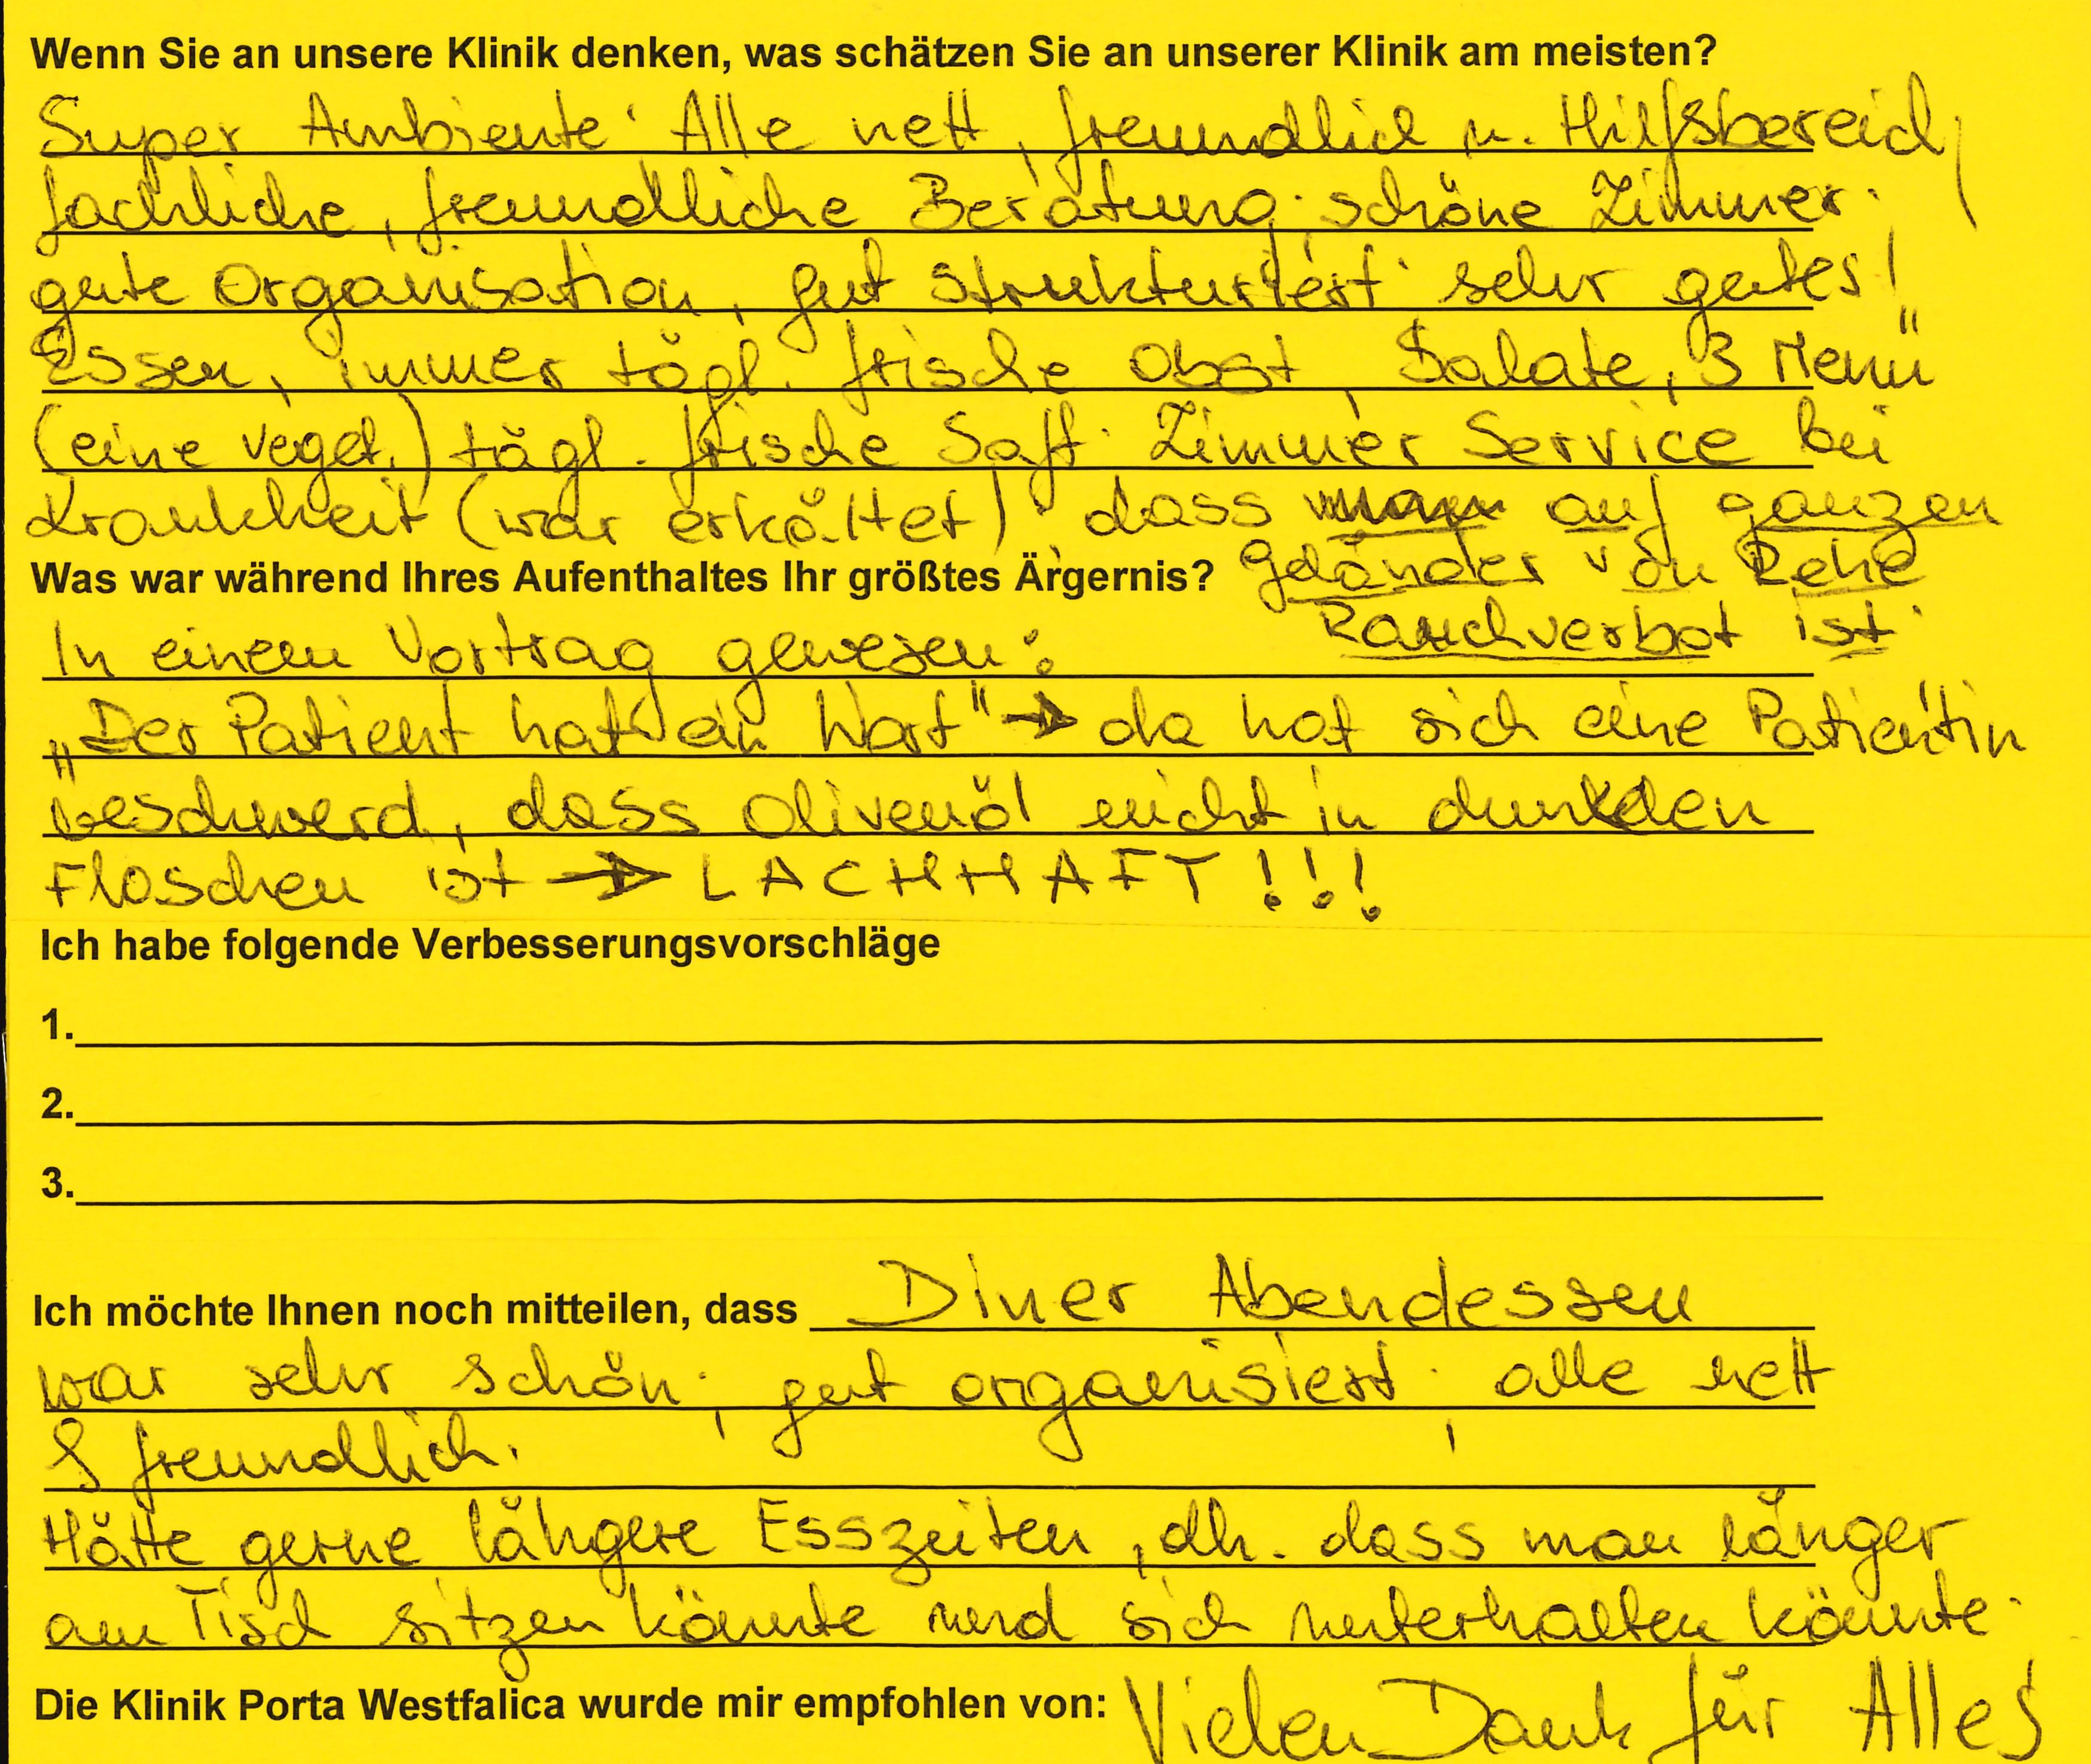 Wenn Sie an unsere Klinik denken, was schätzen Sie an unserer Klinik am meisten?
Super Ambiente. Alle nett, freundlich u. Hilfsbereid,
fachliche, freundliche Beratung; schöne Zimmer.
gute Organisation, gut strukturiert; sehr gutes!
Essen, immer tägl. frische Obst, Salate, 3 Menü"
(eine veget.) tägl. frische Saft. Zimmer Service bei
Krankheit (war erkältet); dass man auf ganzen
Geländer von Rehe
Rauchverbot ist.
Was war während Ihres Aufenthaltes Ihr größtes Ärgernis?
In einem Vortrag gewesen:
„Der Patient hat ein Wort" → da hat sich eine Patientin
beschwerd, dass Olivenöl nicht in dunklen
Flaschen ist → LACHHAFT!!!
Ich habe folgende Verbesserungsvorschläge
1.
2.
3.
Ich möchte Ihnen noch mitteilen, dass Diner Abendessen
war sehr schön; gut organisiert; alle nett
& freundlich.
Hätte gerne längere Esszeiten, dh. dass man länger
am Tisch sitzen könnte und sich unterhalten könnte.
Die Klinik Porta Westfalica wurde mir empfohlen von: Vielen Dank für Alles